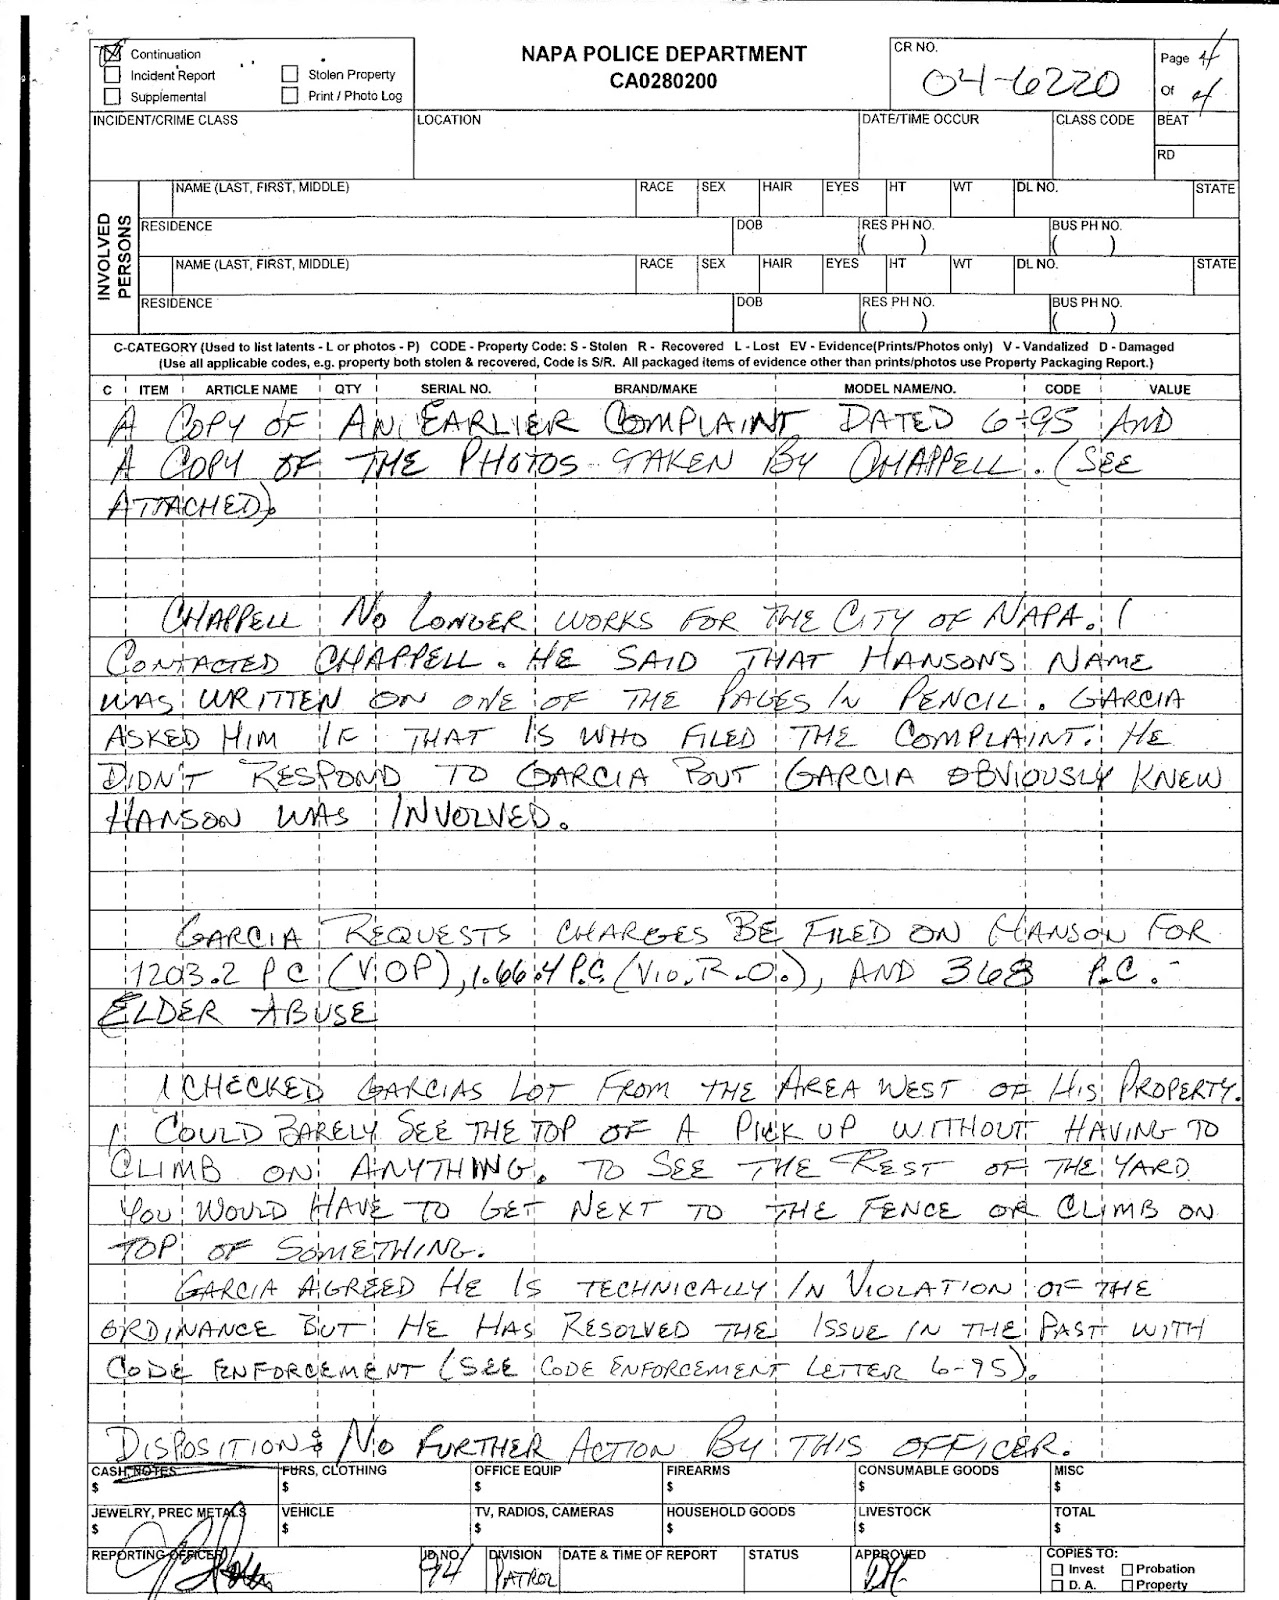 Continuation
Incident Report
Stolen Property
Supplemental
Print / Photo Log
NAPA POLICE DEPARTMENT
CA0280200
CR NO.
04-6220
Page 4
Of 4
INCIDENT/CRIME CLASS
LOCATION
DATE/TIME OCCUR
CLASS CODE
BEAT
RD
INVOLVED PERSONS
NAME (LAST, FIRST, MIDDLE) RACE SEX HAIR EYES HT WT DL NO. STATE
RESIDENCE DOB RES PH NO. BUS PH NO.
( ) ( )
NAME (LAST, FIRST, MIDDLE) RACE SEX HAIR EYES HT WT DL NO. STATE
RESIDENCE DOB RES PH NO. BUS PH NO.
( ) ( )
C-CATEGORY (Used to list latents - L or photos - P) CODE - Property Code: S - Stolen R - Recovered L - Lost EV - Evidence(Prints/Photos only) V - Vandalized D - Damaged
(Use all applicable codes, e.g. property both stolen & recovered, Code is S/R. All packaged items of evidence other than prints/photos use Property Packaging Report.)
C ITEM ARTICLE NAME QTY SERIAL NO. BRAND/MAKE MODEL NAME/NO. CODE VALUE
A COPY OF AN EARLIER COMPLAINT DATED 6-95 AND
A COPY OF THE PHOTOS TAKEN BY CHAPPELL. (SEE
ATTACHED).
CHAPPELL NO LONGER WORKS FOR THE CITY OF NAPA. I
CONTACTED CHAPPELL. HE SAID THAT HANSONS NAME
WAS WRITTEN ON ONE OF THE PAGES IN PENCIL. GARCIA
ASKED HIM IF THAT IS WHO FILED THE COMPLAINT. HE
DIDN'T RESPOND TO GARCIA BUT GARCIA OBVIOUSLY KNEW
HANSON WAS INVOLVED.
GARCIA REQUESTS CHARGES BE FILED ON HANSON FOR
1203.2 PC (VOP), 166.4 P.C. (VIO. R.O.), AND 368 P.C. -
ELDER ABUSE
I CHECKED GARCIAS LOT FROM THE AREA WEST OF HIS PROPERTY.
I COULD BARELY SEE THE TOP OF A PICK UP WITHOUT HAVING TO
CLIMB ON ANYTHING. TO SEE THE REST OF THE YARD
YOU WOULD HAVE TO GET NEXT TO THE FENCE OR CLIMB ON
TOP OF SOMETHING.
GARCIA AGREED HE IS TECHNICALLY IN VIOLATION OF THE
ORDINANCE BUT HE HAS RESOLVED THE ISSUE IN THE PAST WITH
CODE ENFORCEMENT (SEE CODE ENFORCEMENT LETTER 6-95).
DISPOSITION: NO FURTHER ACTION BY THIS OFFICER.
CASH, NOTES FURS, CLOTHING OFFICE EQUIP FIREARMS CONSUMABLE GOODS MISC
$ $ $ $ $ $
JEWELRY, PREC METALS VEHICLE TV, RADIOS, CAMERAS HOUSEHOLD GOODS LIVESTOCK TOTAL
$ $ $ $ $ $
REPORTING OFFICER ID NO. DIVISION DATE & TIME OF REPORT STATUS APPROVED COPIES TO:
94 PATROL
Invest Probation
D. A. Property